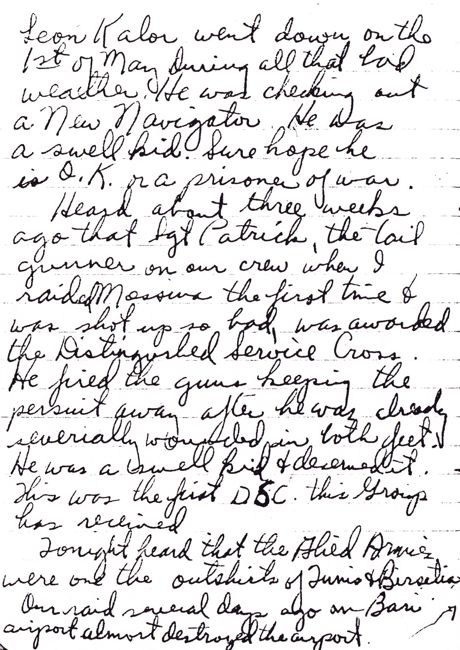 Leon Kalor went down on the
1st of May during all that bad
weather. He was checking out
a New Navigator. He was
a swell kid. Sure hope he
is O.K. or a prisoner of war.
Heard about three weeks
ago that Sgt Patrick, the tail
gunner on our crew when I
raided Messina the first time &
was shot up so bad, was awarded
the Distinguished Service Cross.
He fired the guns keeping the
persuit away after he was already
severially wounded in both feet.
He was a swell kid & deserved it.
This was the first DSC. this Group
has received
Tonight heard that the Allied Armies
were one the outskirts of Tunis &
Our raid several days ago on Bari
airport almost destroyed the airport.